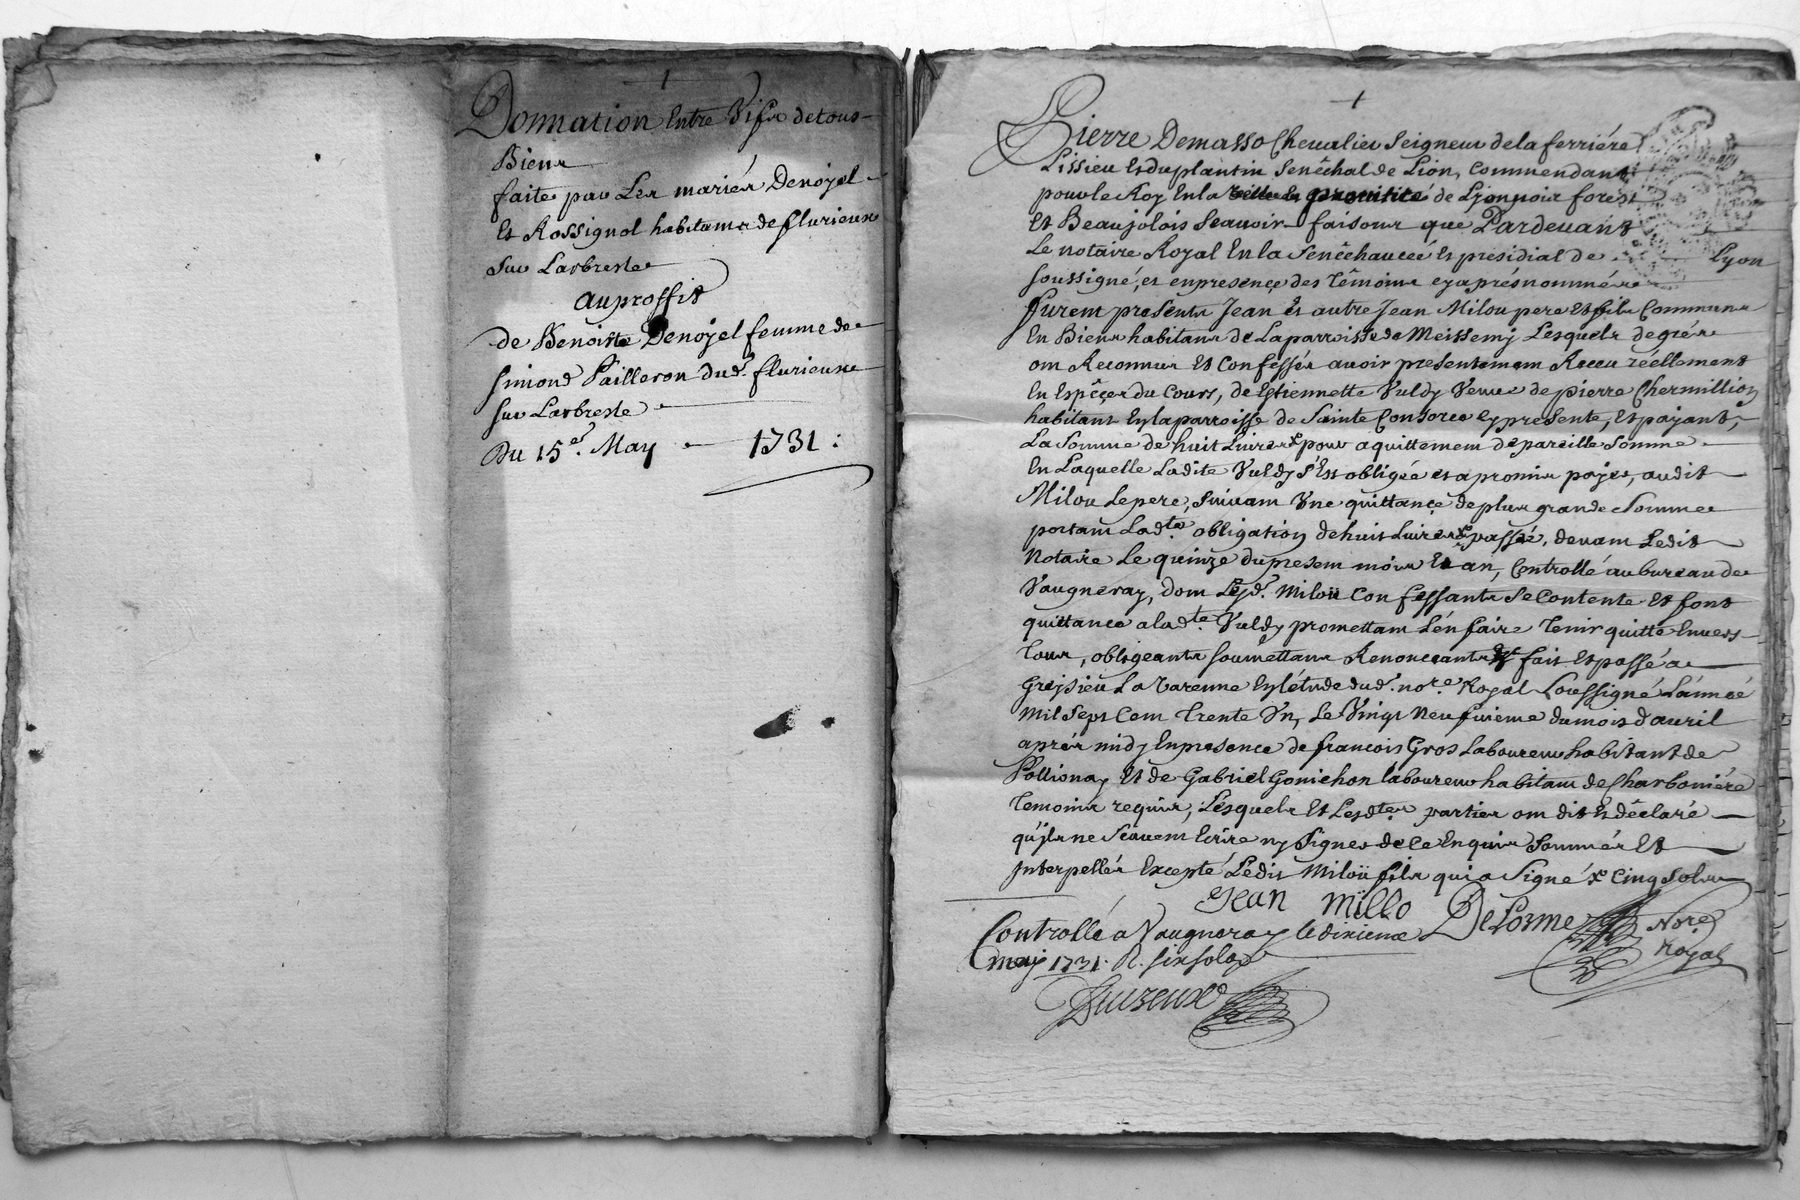 Donnation Entre Vifs detous
Biens
faite par Les mariés Denoyel
Et Rossignol habitants de flurieux
sur Larbresle
auproffit
de Benoiste Denoyel femme de
simond Pailleron dud. flurieux
sur Larbresle
Du 15e. May 1731:
Pierre Demasso Chevalier Seigneur dela ferriére
Lissieu Et du plantin Senêchal de Lion, Commendant
pour le Roy En la province de Lyonnois forest
Et Beaujolois Scavoir faisons que Pardevant
Le notaire Royal En la Senêchaucée Et présidial de Lyon
soussigné, et en presence des témoins cy aprés nommés
furent presents Jean Et autre Jean Milou pere Et fils Communs
En Biens habitans de La parroisse de Meissemy Lesquels de gré
ont Reconnus Et Confessés avoir presentement Receu réellement
En Espêçes du Cours, de Estiennette Vuldy Veuve de pierre Chermillion
habitant En la parroisse de Sainte Consorce cy presente, Et payant,
La Somme de huit Livres x pour aquittement de pareille Somme
En Laquelle Ladite Vuldy s'Est obligée et a promis payer, audit
Milou Le pere, suivant Vne quittançe de plus grande Somme
portant Lad.te obligation de huit Livres x passée, devant Ledit
Notaire Le quinze du present mois Et an, Controllé au bureau de
Vaugneray, dont Lesd. Miloü Confessants se Contente Et font
quittance a lad.te Vuldy promettant L'én faire tenir quitte Envers
tous, obligeants soumettans Renonceants fait Et passé a
Greysieu La Varenne En l'étude dud. no.re Royal Soussigné L'année
Mil Sept Cent trente Vn, Le Vingt Neufuieme du mois d'avril
aprés midy En presence de francois Gros Laboureur habitant de
Pollionay Et de Gabriel Gonichon laboureur habitant de Charboniére
temoins requis, Lesquels Et Lesd.tes parties ont dit Et déclaré
qu'ils ne Scavent Ecrire ny Signer de ce Enquis Sommés Et
Interpellés Excepté Ledit Miloü fils qui a Signé x Cinq Sols
Jean Millo DeLorme Nore
Royal
Controllé a Vaugneray le dixieme
may 1731. R. six sols